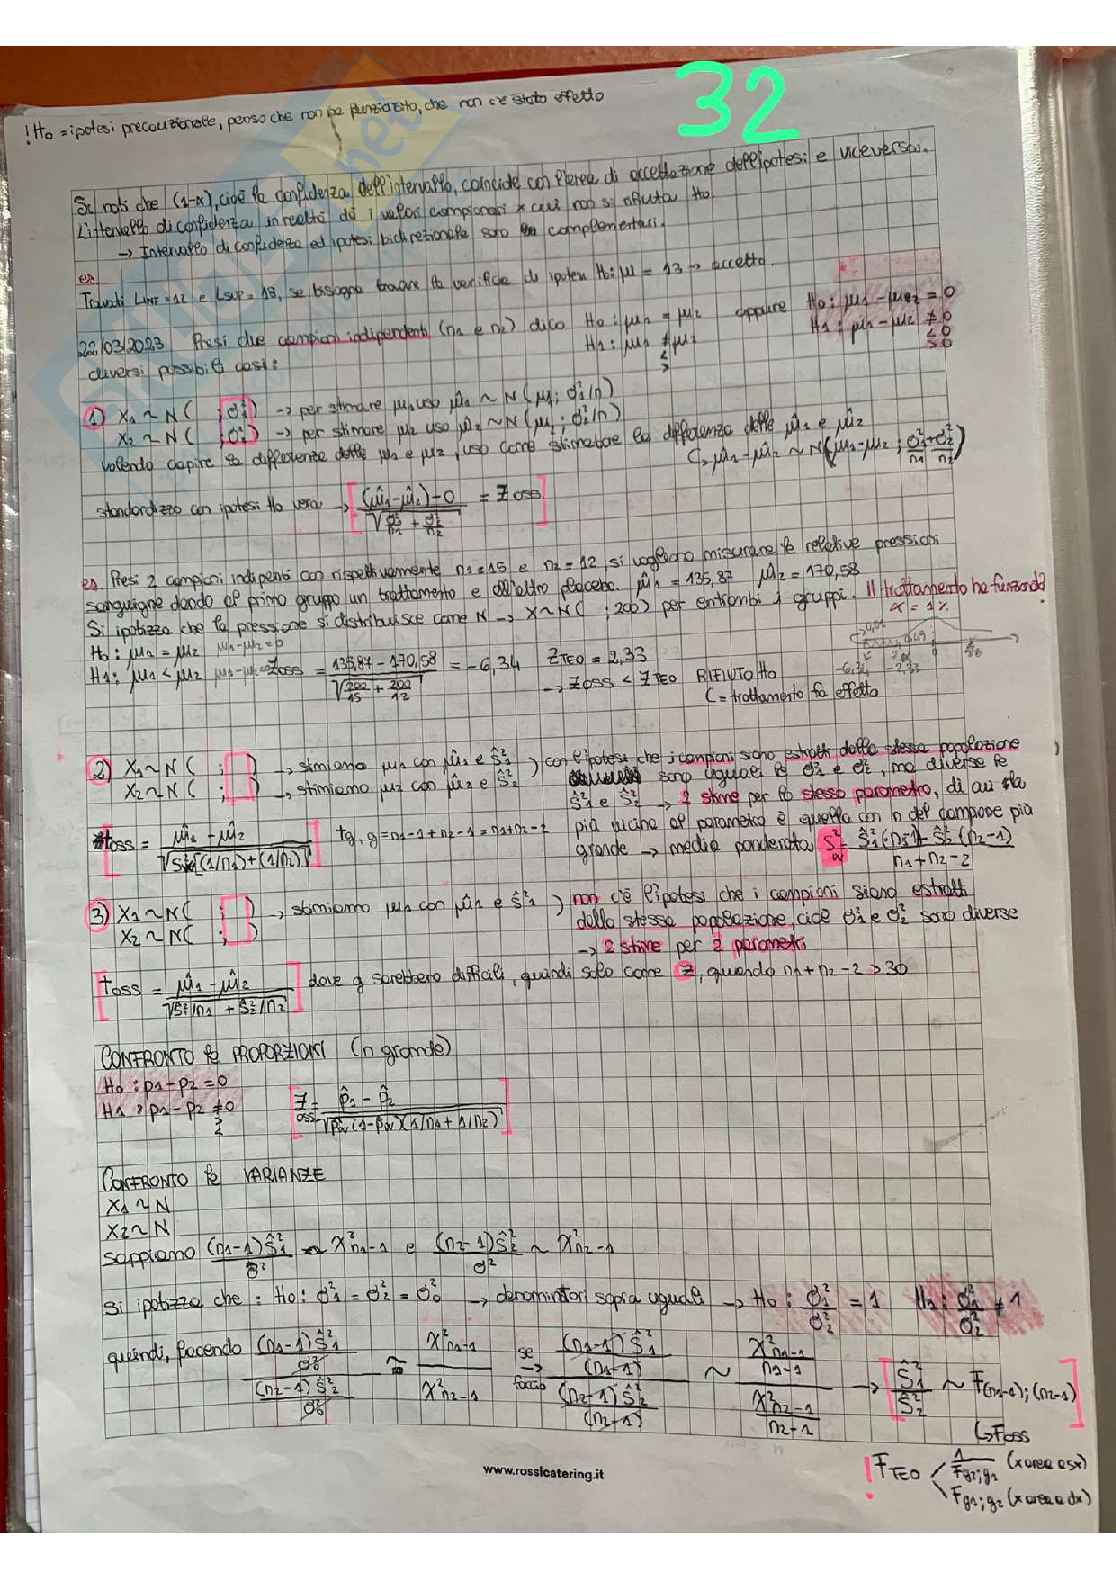 32
! H0 = ipotesi precauzionale, penso che non ha funzionato, che non c'è stato effetto
Si noti che (1-α), cioè la confidenza dell'intervallo, coincide con l'area di accettazione dell'ipotesi e viceversa.
L'intervallo di confidenza in realtà dà i valori campionari x cui non si rifiuta H0.
→ Intervallo di confidenza ed ipotesi bidirezionale sono complementari.
es.
Trovati LINF = 12 e LSUP = 18, se bisogna trovare la verifica di ipotesi H0: μ = 13 → accetto.
22/03/2023 Presi due campioni indipendenti (n1 e n2) dico H0: μ1 = μ2 oppure H0: μ1 - μ2 = 0
H1: μ1 ≠ μ2 H1: μ1 - μ2 ≠ 0
< > < 0 > 0
diversi possibili casi:
1) X1 ~ N( ; σ²1) → per stimare μ1 uso μ̂1 ~ N(μ1; σ²1/n)
X2 ~ N( ; σ²2) → per stimare μ2 uso μ̂2 ~ N(μ2; σ²2/n)
volendo capire la differenza delle μ1 e μ2, uso come stimatore la differenza delle μ̂1 e μ̂2
↳ μ̂1 - μ̂2 ~ N(μ1 - μ2; σ²1/n1 + σ²2/n2)
standardizzo con ipotesi H0 vera → (μ̂1 - μ̂2) - 0 / √(σ²1/n1 + σ²2/n2) = ZOSS
es. Presi 2 campioni indipenti con rispettivamente n1 = 15 e n2 = 12 si vogliono misurare le relative pressioni
sanguigne dando al primo gruppo un trattamento e all'altro placebo. μ̂1 = 135,87 μ̂2 = 170,58
Si ipotizza che la pressione si distribuisce come N → X ~ N( ; 200) per entrambi i gruppi. Il trattamento ha funzionato?
α = 1%
H0: μ1 = μ2 μ1 - μ2 = 0
H1: μ1 < μ2 ZOSS = 135,87 - 170,58 / √(200/15 + 200/12) = -6,34 ZTEO = 2,33
→ ZOSS < ZTEO RIFIUTO H0
↳ = trattamento fa effetto
-6,34 -2,33 0
2) X1 ~ N( ; ) → stimiamo μ1 con μ̂1 e ŝ²1 ) con l'ipotesi che i campioni sono estratti dalla stessa popolazione
X2 ~ N( ; ) → stimiamo μ2 con μ̂2 e ŝ²2 sono uguali le σ²1 e σ²2, ma diverse le
ŝ²1 e ŝ²2 → 2 stime per lo stesso parametro, di cui sta
tOSS = μ̂1 - μ̂2 / √(S²[(1/n1) + (1/n2)]) tg, g = n1 - 1 + n2 - 1 = n1 + n2 - 2 più vicina al parametro è quella con n del campione più
grande → media ponderata S² = ŝ²1 (n1 - 1) + ŝ²2 (n2 - 1) / n1 + n2 - 2
3) X1 ~ N( ; ) → stimiamo μ1 con μ̂1 e ŝ²1 ) non c'è l'ipotesi che i campioni siano estratti
X2 ~ N( ; ) dalla stessa popolazione, cioè σ²1 e σ²2 sono diverse
→ 2 stime per 2 parametri
tOSS = μ̂1 - μ̂2 / √(ŝ²1/n1 + ŝ²2/n2) dove g sarebbero difficili, quindi solo come Z, quando n1 + n2 - 2 > 30
CONFRONTO fe PROPORZIONI (n grande)
H0: p1 - p2 = 0
H1: p1 - p2 ≠ 0
> <
ZOSS = p̂1 - p̂2 / √(pw (1 - pw)(1/n1 + 1/n2))
CONFRONTO fe VARIANZE
X1 ~ N
X2 ~ N
sappiamo (n1-1)ŝ²1 / σ² ~ X²n1-1 e (n2-1)ŝ²2 / σ² ~ X²n2-1
Si ipotizza che: H0: σ²1 = σ²2 = σ²0 → denominatori sopra uguali → H0: σ²1/σ²2 = 1 H1: σ²1/σ²2 ≠ 1
quindi, facendo (n1-1)ŝ²1/σ²0 / (n2-1)ŝ²2/σ²0 ≈ X²n1-1 / X²n2-1 se faccio → (n1-1)ŝ²1/(n1-1) / (n2-1)ŝ²2/(n2-1) ~ X²n1-1/n1-1 / X²n2-1/n2-1 → ŝ²1/ŝ²2 ~ F(n1-1);(n2-1)
↳ FOSS
! FTEO 1/Fg2;g1 (x area a sx)
Fg1;g2 (x area a dx)
www.rossicatering.it